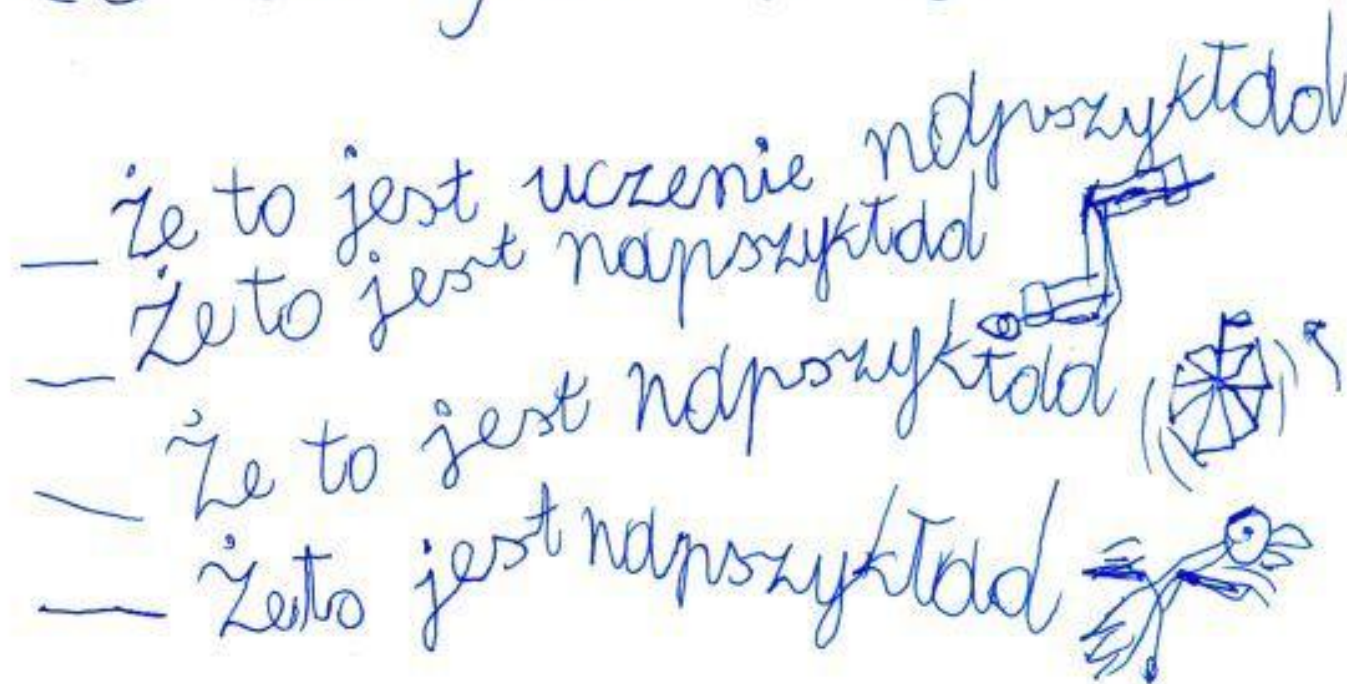 — Że to jest uczenie napszykład
— Że to jest napszykład
— Że to jest napszykład
— Że to jest napszykład